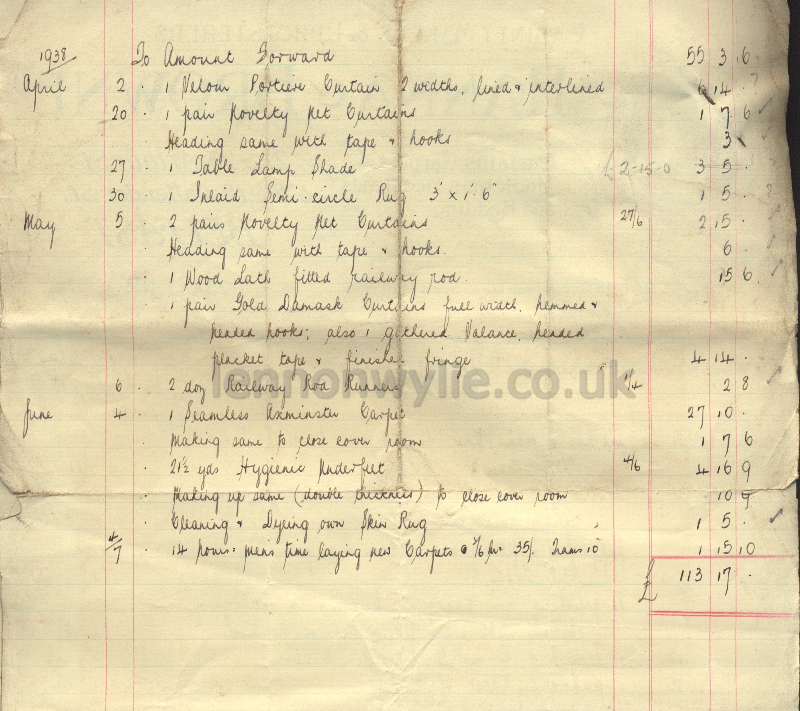 1938 To Amount Forward 55 3 6
April 2 . 1 Velour Portiere Curtain 2 widths, lined & interlined 6 14 . ?
20 . 1 pair Novelty Net Curtains 1 7 6 ✓
. Heading same with tape & hooks 3
27 . 1 Table Lamp Shade £2-15-0 3 5 .
30 . 1 Inlaid Semi-circle Rug 3' x 1'·6" 1 5 . ?
May 5 . 2 pairs Novelty Net Curtains 27/6 2 15 .
. Heading same with tape & hooks. 6 .
. 1 Wood Lath fitted railway rod. 15 6
. 1 pair Gold Damask Curtains full width, hemmed &
headed hooks; also 1 gathered Valance, headed
placket tape & finished fringe 4 14 .
6 . 2 doz Railway Rod Runners 1/4 2 8
lennonwylie.co.uk
June 4 . 1 Seamless Axminster Carpet 27 10 .
. Making same to close cover room 1 7 6
. 21½ yds Hygienic Underfelt 4/6 4 16 9
. Making up same (double thickness) to close cover room 10 9
. Cleaning & Dyeing own Skin Rug 1 5 . ✓
4/7 . 14 hours: mens time laying new Carpets @ 2/6 hr. 35/. Trams 10 1 15 10
£ 113 17 .